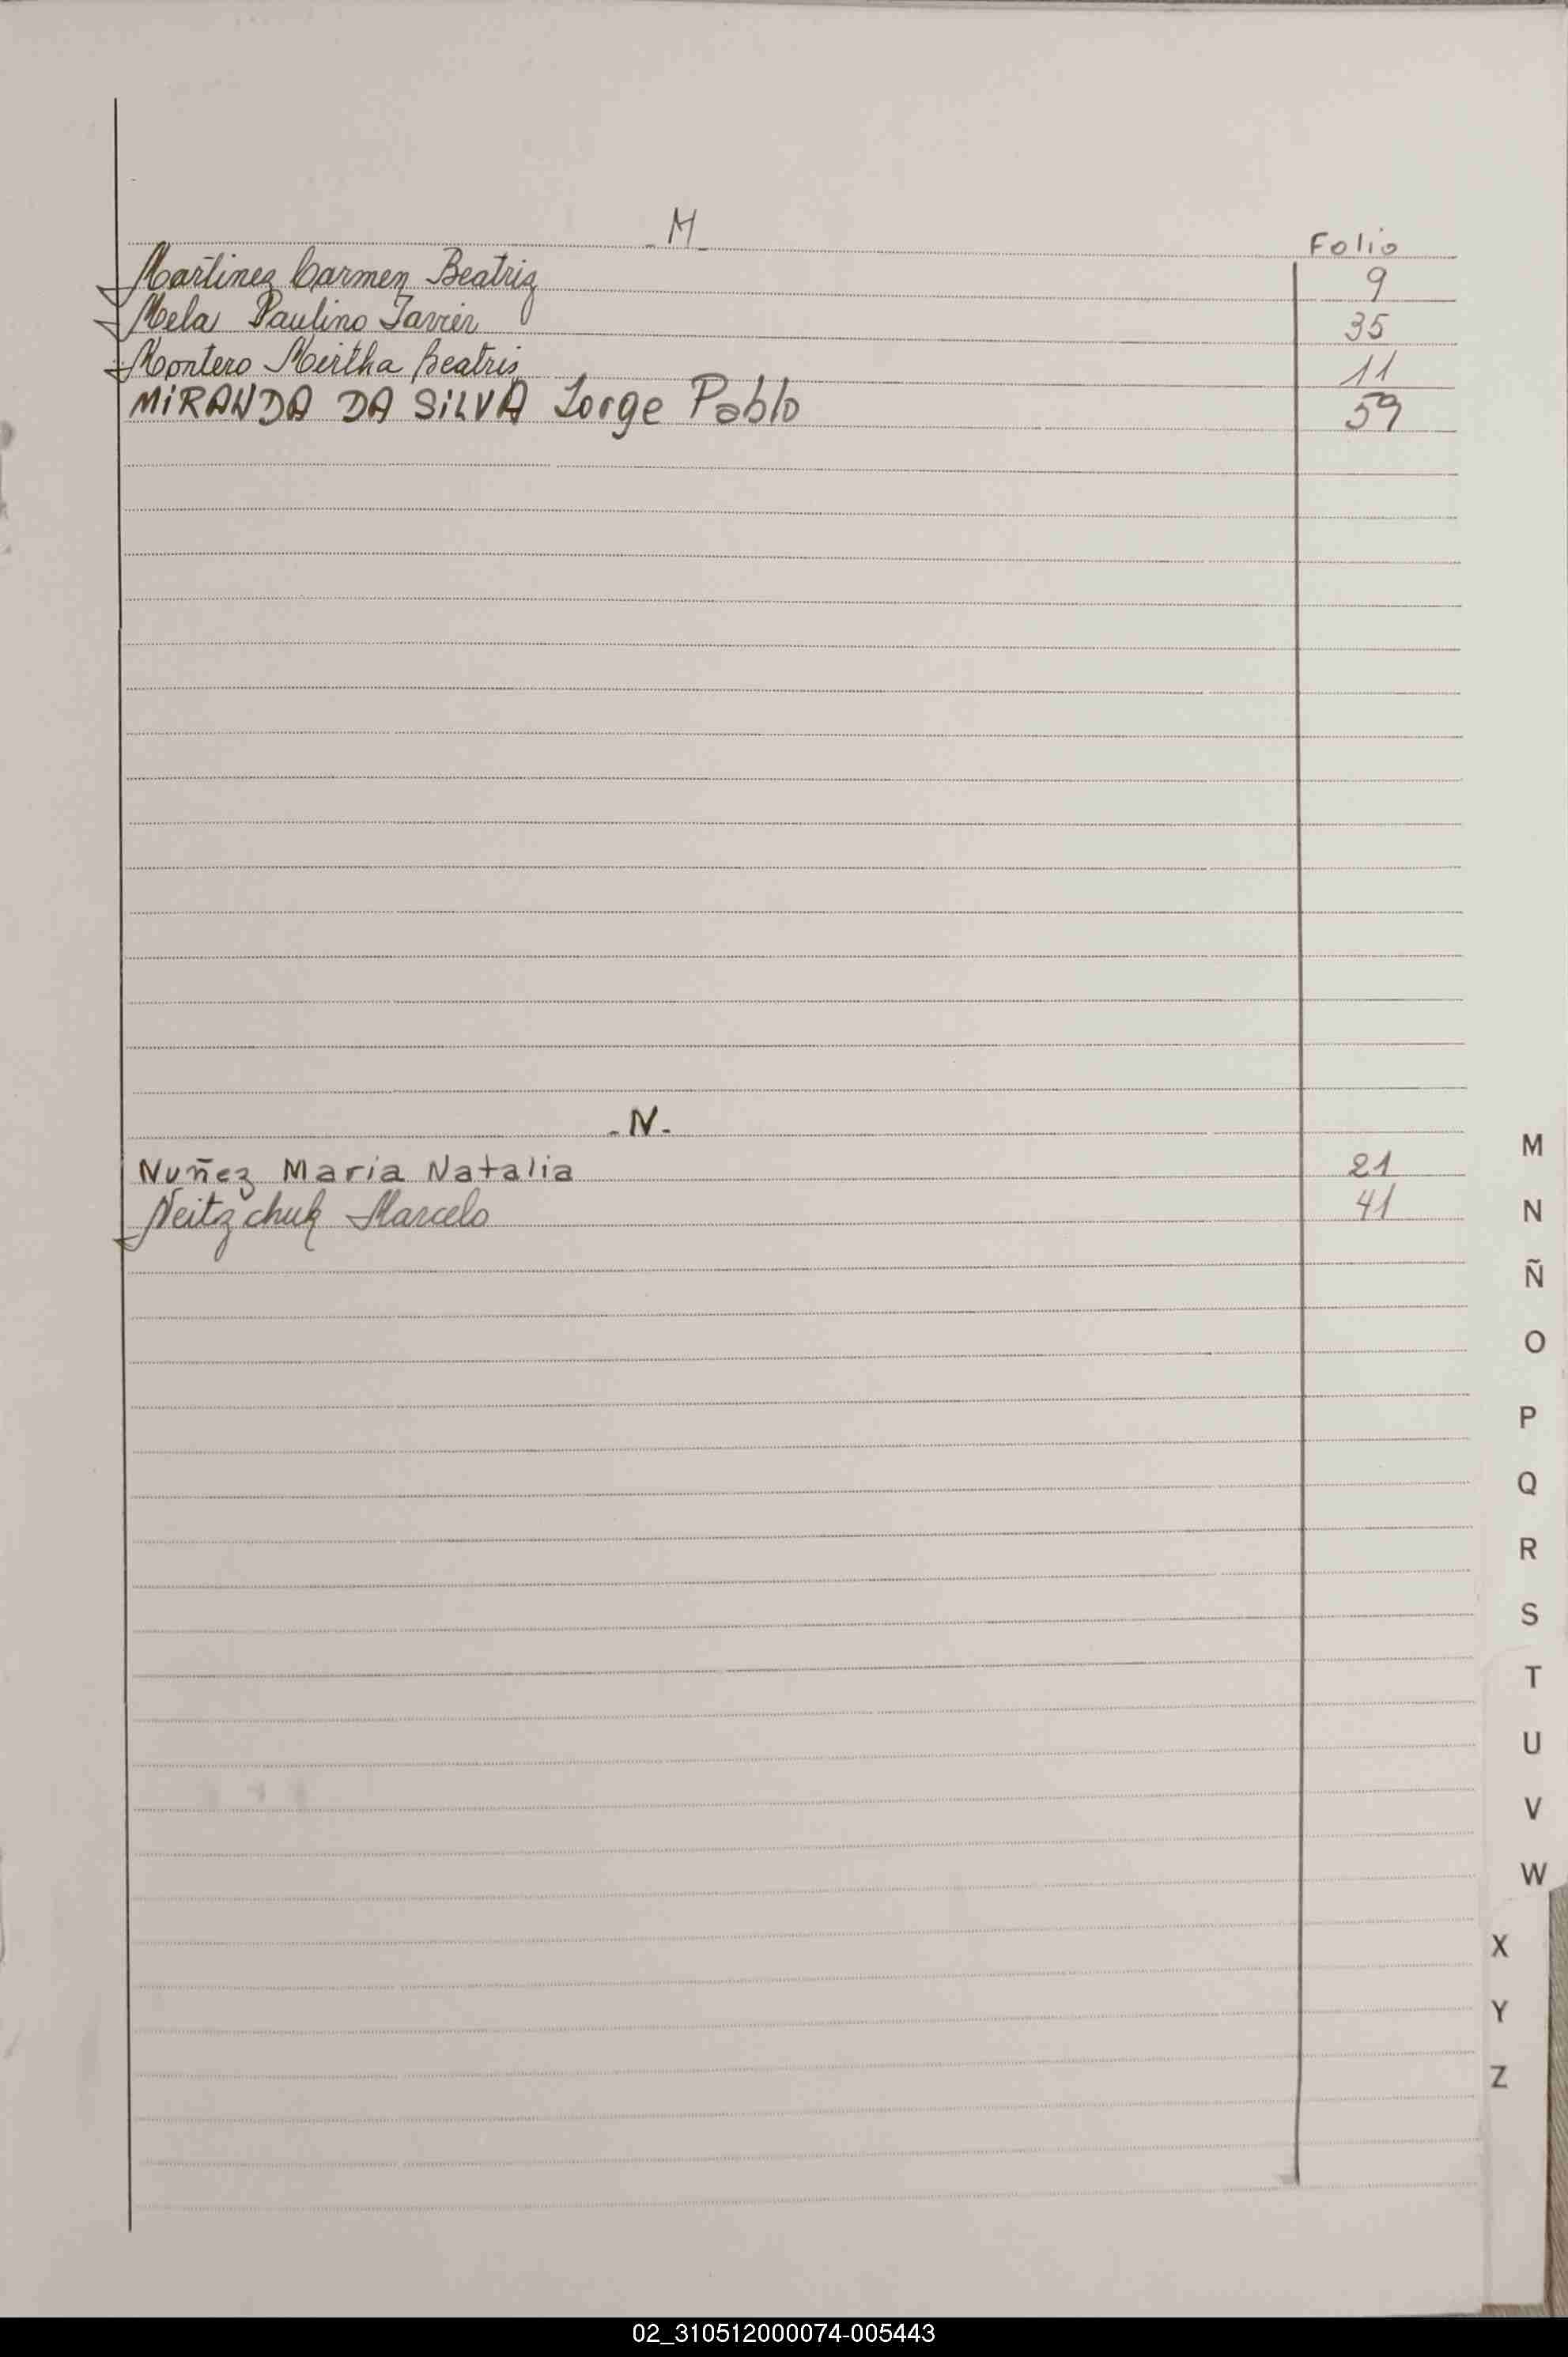 - M -
Folio
Martinez Carmen Beatriz 9
Mela Paulino Javier 35
Montero Mirtha Beatris 11
MiRANDA DA SiLVA Jorge Pablo 59
- N -
Nuñez Maria Natalia 21
Neitzchuk Marcelo 41
M
N
Ñ
O
P
Q
R
S
T
U
V
W
X
Y
Z
02_310512000074-005443